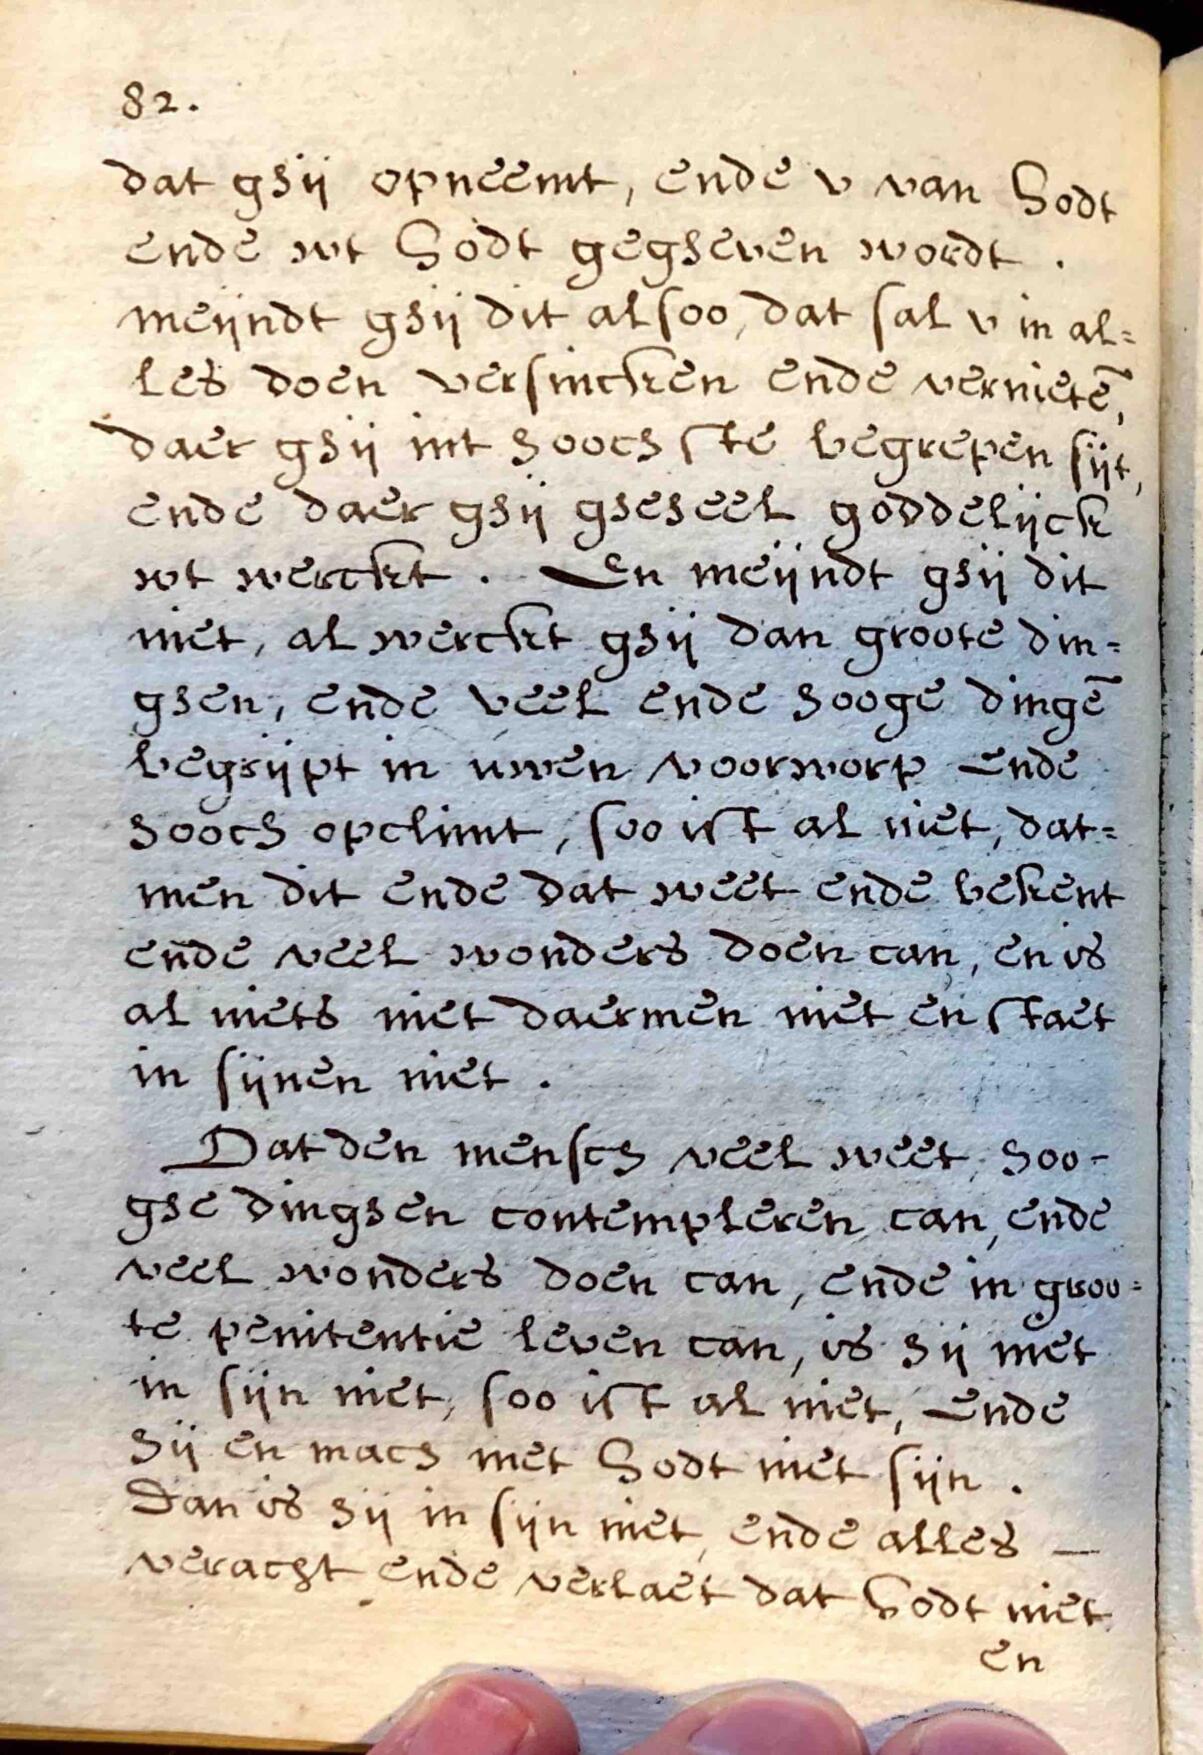 82.
dat ghij opneemt, ende v van Godt
ende wt Godt gegheven wordt .
meijndt ghij dit alsoo, dat sal v in al=
les doen versincken ende vernietē,
daer ghij int hoochste begrepen sijt,
ende daer ghij gheheel goddelijck
wt werckt . En meijndt ghij dit
niet, al werckt ghij dan groote din=
ghen, ende veel ende hooge dingē
begrijpt in uwen voorworp ende
hooch opclimt, soo ist al niet, dat=
men dit ende dat weet ende bekent
ende veel wonders doen can, en is
al niets niet daermen niet en staet
in sijnen niet .
Dat den mensch veel weet, hoo-
ghe dinghen contempleren can, ende
veel wonders doen can, ende in groo=
te penitentie leven can, is hij niet
in sijn niet, soo ist al niet, ende
hij en mach met Godt niet sijn .
Dan is hij in sijn niet, ende alles —
veracht ende verlaet dat Godt niet
en